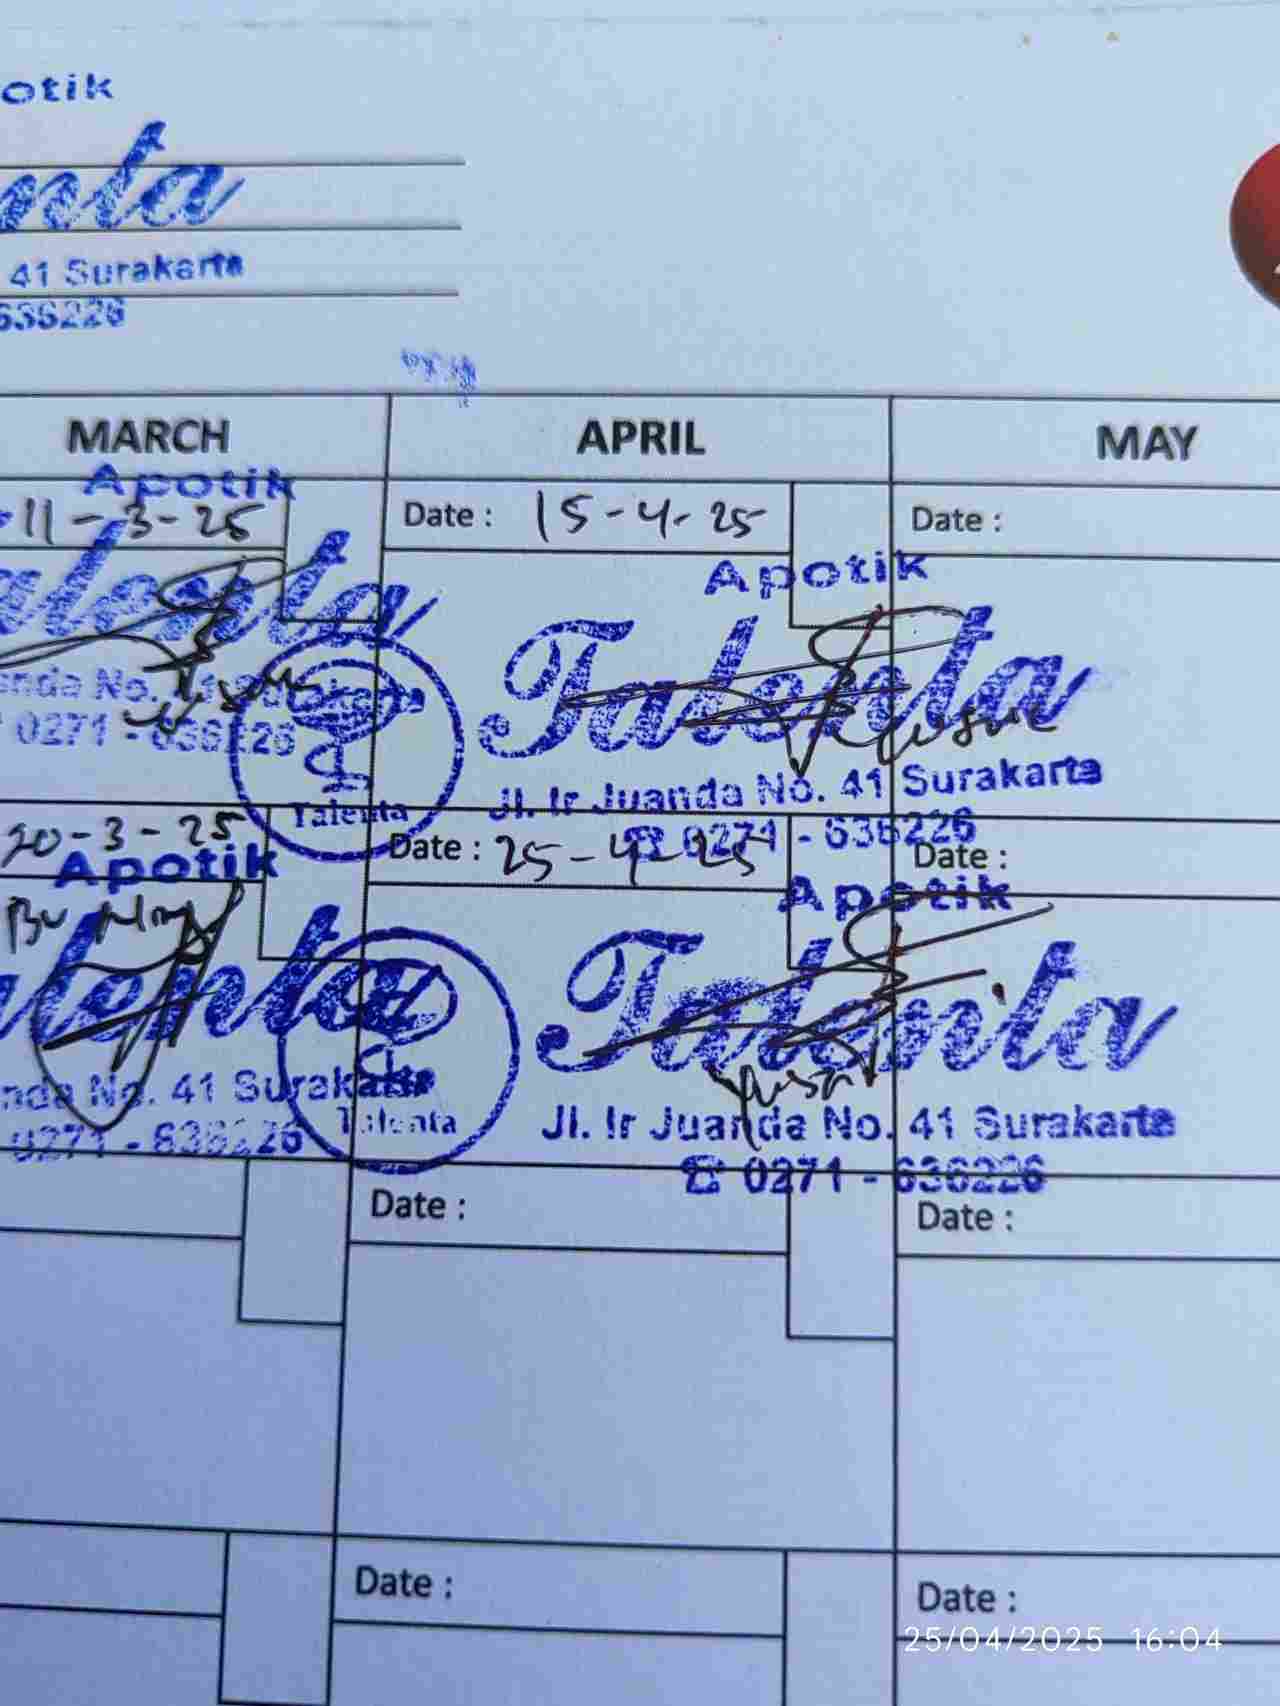 otik
nta
41 Surakarta
636226
MARCH APRIL MAY
Apotik
11-3-25 Date : 15-4-25 Date :
alenta Apotik
Talenta
anda No. 41 Surakarta
0271 - 636226
Jl. Ir Juanda No. 41 Surakarta
☎ 0271 - 636226
Talenta
20-3-25 Date : 25-4-25 Date :
Apotik Apotik
Bu
alenta Talenta
nda No. 41 Surakarta
0271 - 636226 Talenta
Jl. Ir Juanda No. 41 Surakarta
☎ 0271 - 636226
Date : Date :
Date : Date :
25/04/2025 16:04